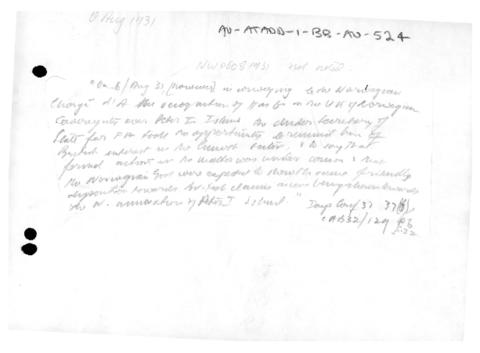 6 Aug 1931
AU-ATADD-1-BB-AU-524
NW 0608 1931 not noted.
"On 6/Aug 31, [however] in conveying to the Norwegian
Chargé d'A the recognition by HMG in the UK of Norwegian
Sovereignty over Peter I Island the Under Secretary of
State for F A took the opportunity to remind him of
British interest in the sector, & to say that
formal action in the matter was under &  that
the Norwegian Govt were expected to show the same friendly
disposition towards Brit claims as was being shown towards
the N. annexation of Peter I Island." Imp Conf 37 37
CAB32/129